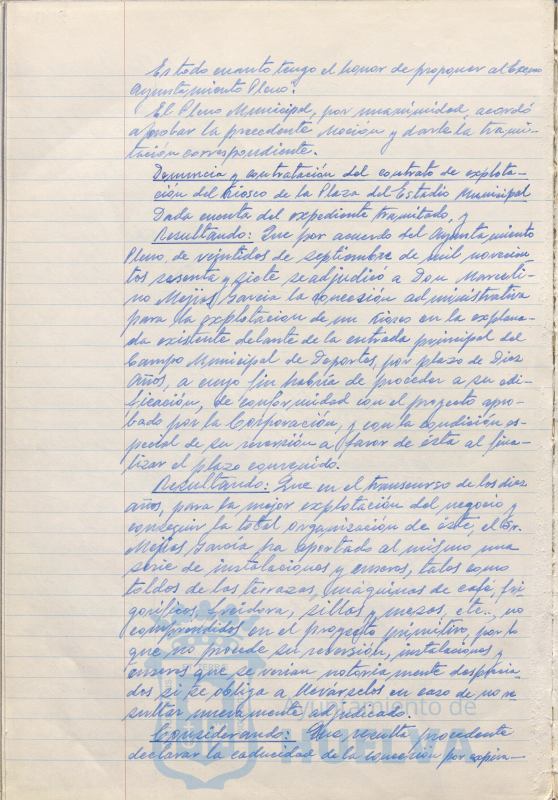 Es todo cuanto tengo el honor de proponer al Excmo
Ayuntamiento Pleno".
El Pleno Municipal, por unanimidad, acordó
aprobar la precedente Moción y darle la trami-
tación correspondiente.
Denuncia y contratación del contrato de explota-
ción del Kiosco de la Plaza del Estadio Municipal
Dada cuenta del expediente tramitado, y
Resultando: Que por acuerdo del Ayuntamiento
Pleno, de veintidos de septiembre de mil novecien
tos sesenta y siete se adjudicó a Don Marceli-
no Mejías García la concesión administrativa
para la explotación de un kiosco en la explana-
da existente delante de la entrada principal del
Campo Municipal de Deportes, por plazo de Diez
Años, a cuyo fin habría de proceder a su edi-
ficación, de conformidad con el proyecto apro-
bado por la Corporación, y con la condición es-
pecial de su reversión a favor de ésta al fina-
lizar el plazo convenido.
Resultando: Que en el transcurso de los diez
años, para la mejor explotación del negocio y
conseguir la total organización de éste, el Sr.
Mejías García ha aportado al mismo una
serie de instalaciones y enseres, tales como
toldos de las terrazas, máquinas de café, fri
goríficos, freidora, sillas y mesas, etc., no
comprendidos en el proyecto primitivo, por lo
que no procede su reversión, instalaciones y
enseres que se verían notoriamente desprecia-
dos si se obliga a llevárselos en caso de no re
sultar nuevamente adjudicado.
Considerando: Que resulta procedente
declarar la caducidad de la concesión por expira-
Ayuntamiento de
HUELVA